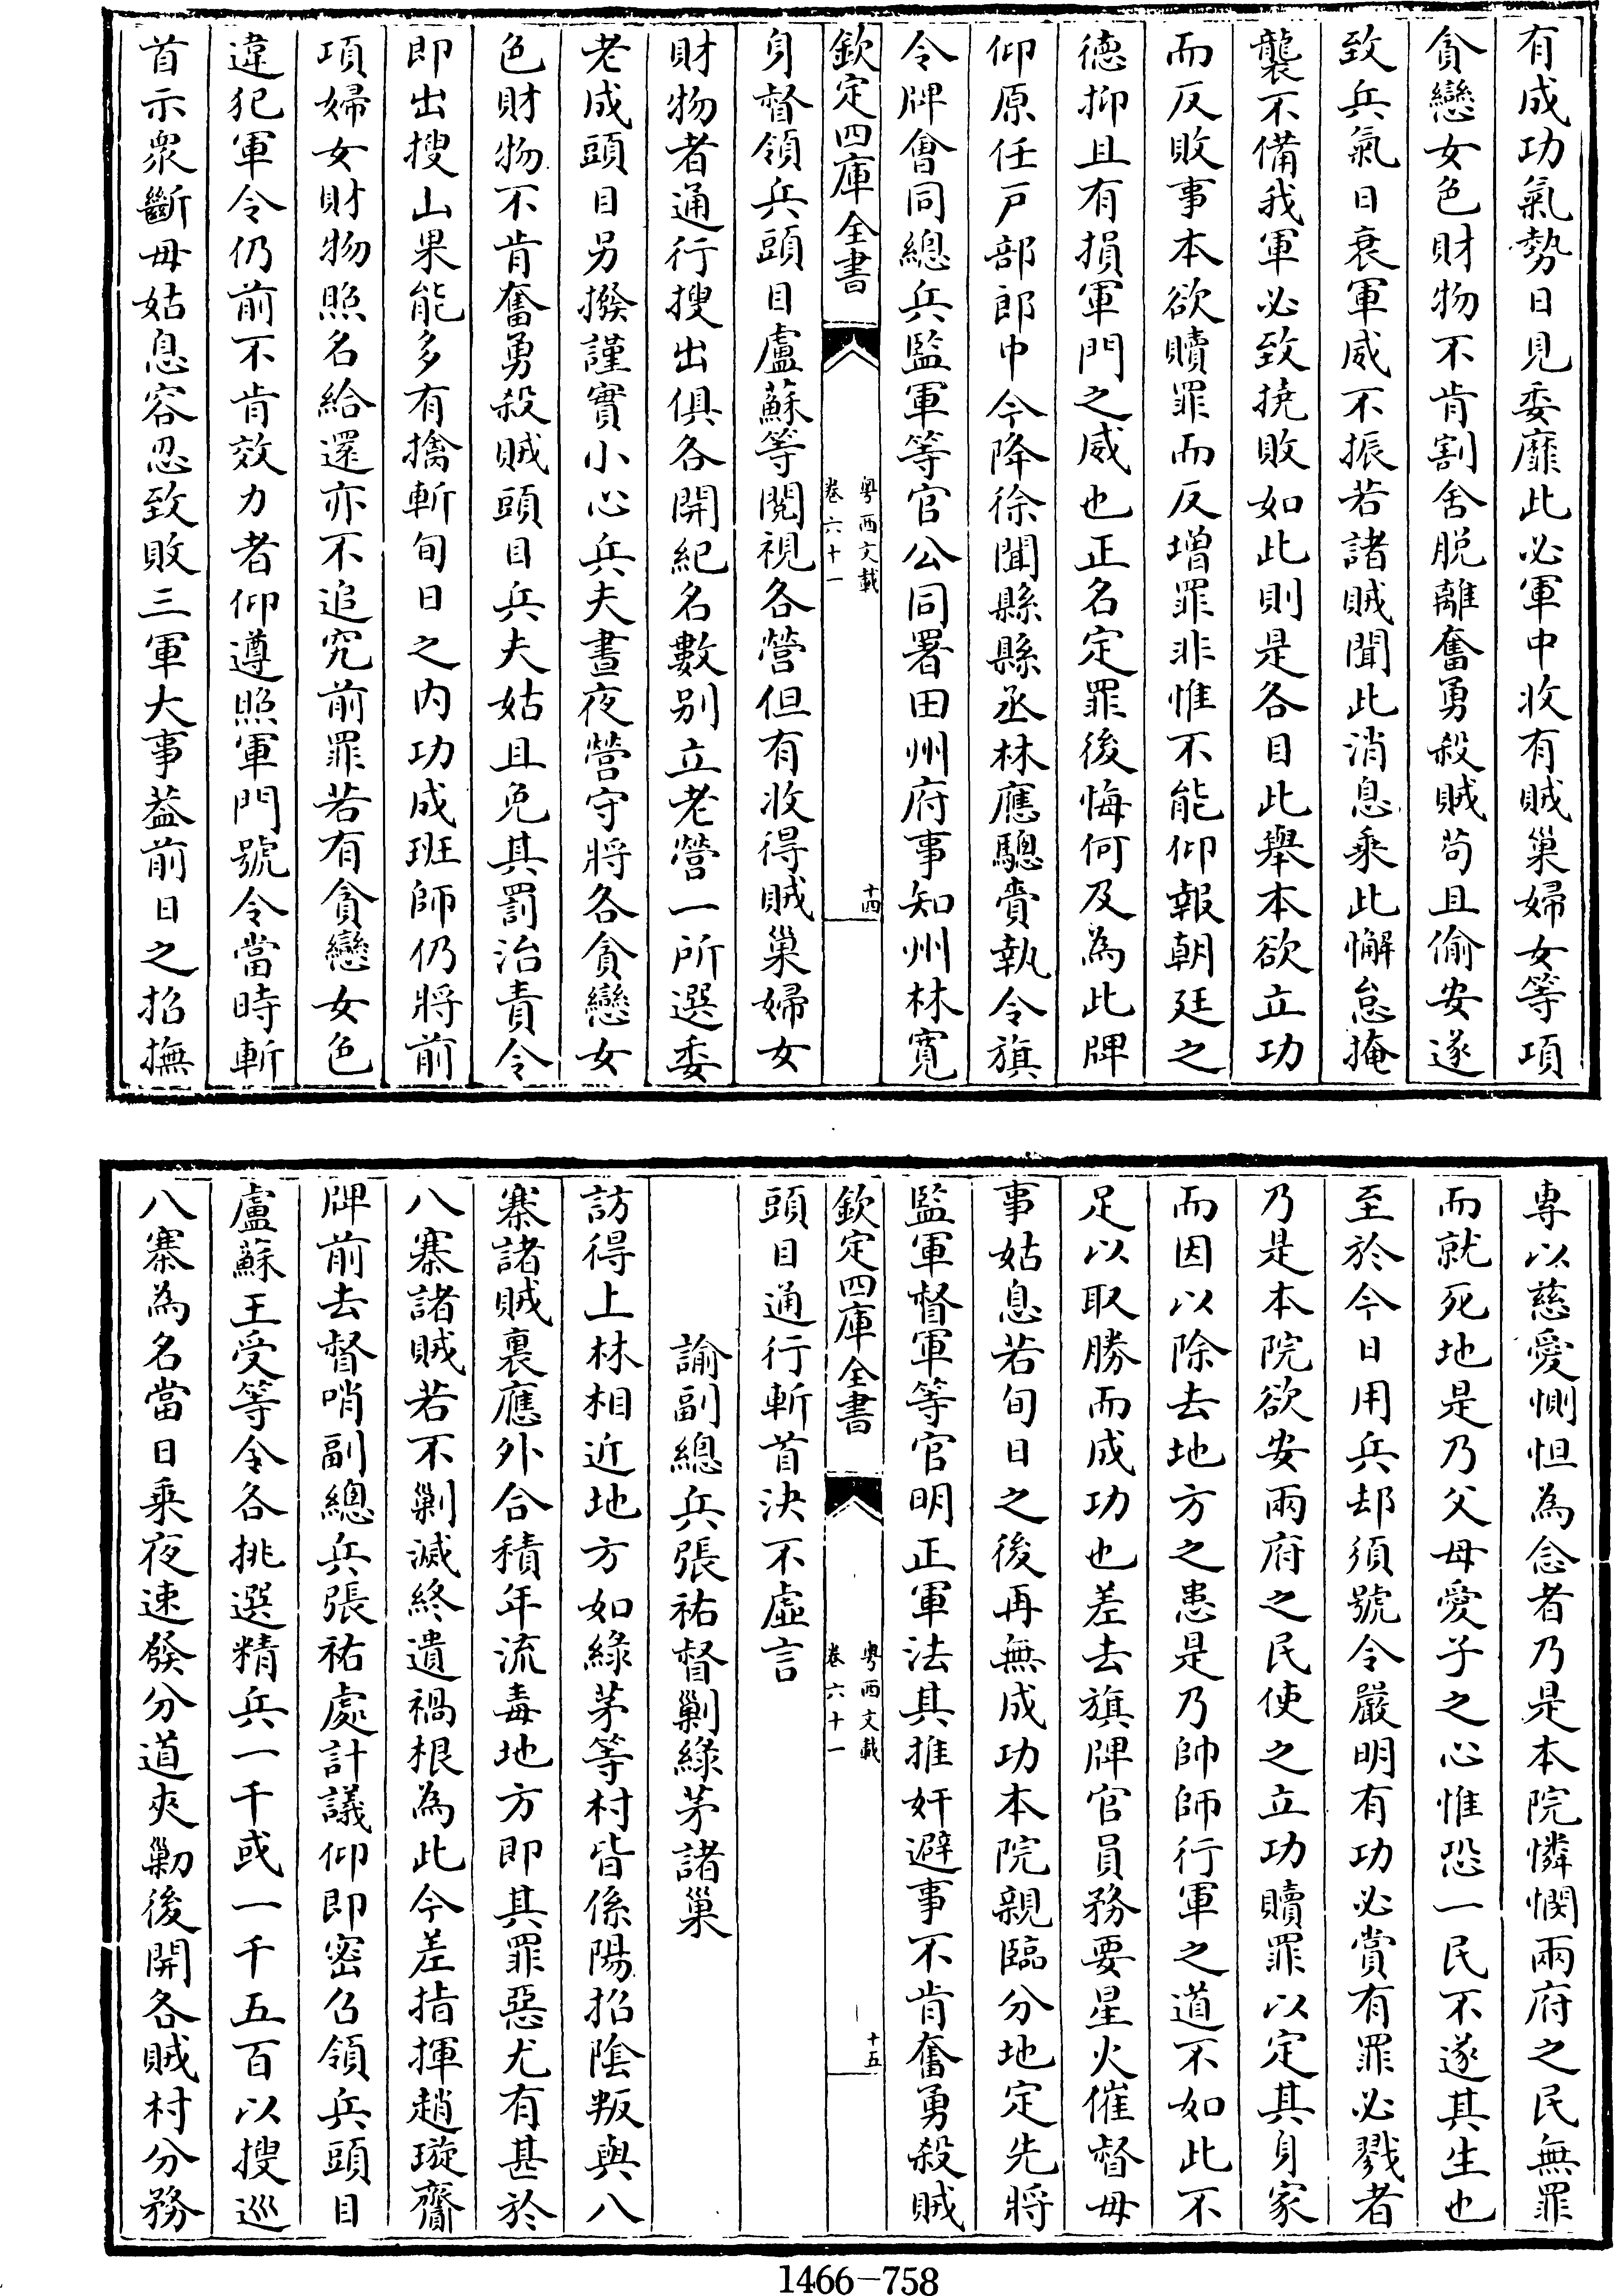 有成功氣勢日見委靡此必軍中收有賊巢婦女等項
貪戀女色財物不肯割舍脫離奮勇殺賊苟且偷安遂
致兵氣日衰軍威不振若諸賊聞此消息乘此懈怠掩
襲不備我軍必致撓敗如此則是各目此舉本欲立功
而反敗事本欲贖罪而反增罪非惟不能仰報朝廷之
德抑且有損軍門之威也正名定罪後悔何及為此牌
仰原任戶部郎中今降徐聞縣縣丞林應驄賫執令旗
令牌會同總兵監軍等官公同署田州府事知州林寬
欽定四庫全書
粵西文載
卷六十一
十四
身督領兵頭目盧蘇等閱視各營但有收得賊巢婦女
財物者通行搜出俱各開紀名數别立老營一所選委
老成頭目另撥謹實小心兵夫晝夜營守將各貪戀女
色財物不肯奮勇殺賊頭目兵夫姑且免其罰治責令
即出搜山果能多有擒斬旬日之内功成班師仍將前
項婦女財物照名給還亦不追究前罪若有貪戀女色
違犯軍令仍前不肯效力者仰遵照軍門號令當時斬
首示衆斷毋姑息容忍致敗三軍大事葢前日之招撫
專以慈愛惻怛為念者乃是本院憐憫兩府之民無罪
而就死地是乃父母愛子之心惟恐一民不遂其生也
至於今日用兵却須號令嚴明有功必賞有罪必戮者
乃是本院欲安兩府之民使之立功贖罪以定其身家
而因以除去地方之患是乃帥師行軍之道不如此不
足以取勝而成功也差去旗牌官員務要星火催督毋
事姑息若旬日之後再無成功本院親臨分地定先將
監軍督軍等官明正軍法其推奸避事不肯奮勇殺賊
欽定四庫全書
粵西文載
卷六十一
十五
頭目通行斬首決不虛言
諭副總兵張祐督剿綠茅諸巢
訪得上林相近地方如綠茅等村皆係陽招陰叛與八
寨諸賊裏應外合積年流毒地方即其罪惡尤有甚於
八寨諸賊若不剿滅終遺禍根為此今差指揮趙璇齎
牌前去督哨副總兵張祐處計議仰即密召領兵頭目
盧蘇王受等令各挑選精兵一千或一千五百以搜巡
八寨為名當日乘夜速發分道夾勦後開各賊村分務
1466-758